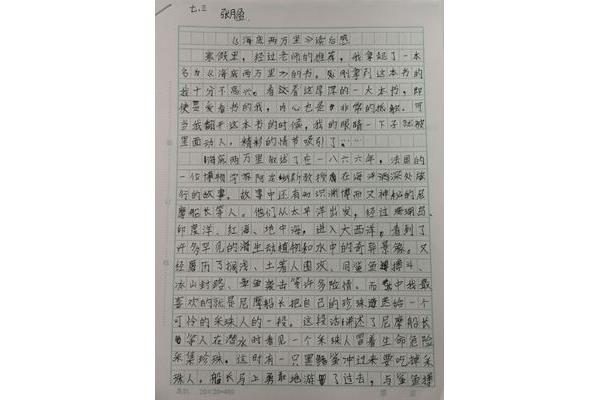 七.三
张月盈
《海底两万里》读后感
寒假里，经过老师的推荐，我拿起了一本
名为《海底两万里》的书。刚拿到这本书的
我十分不高兴。看这着这厚厚的一大本书，即
使是爱看书的我，内心也是非常的抵触。可
当我翻开这本书的时候，我的眼睛一下子就被
里面动人，精彩的情节吸引了……
海底两万里叙述了在一八六六年，法国的
一位博物学家阿龙纳斯教授在海洋深处旅
行的故事。故事中还有知识渊博而又神秘的尼
摩船长等人。他们从太平洋出发，经过珊瑚岛
印度洋、红海、地中海，进入大西洋，看到了
许多罕见的海生动植物和水中的奇异景象。又
经历了搁浅、土著人围攻、同鲨鱼搏斗、
冰山封路、章鱼袭击等许多险情。而其中我最
喜欢的就是尼摩船长把自己的珍珠送给一个
可怜的采珠人的一段。这段话讲述了尼摩船长
等人在潜水时看见一个采珠人冒着生命危险
采集珍珠。这时有一只黑鲨鱼冲过来要吃掉采
珠人，船长马上勇敢地游了过去，与鲨鱼搏
20×20=400